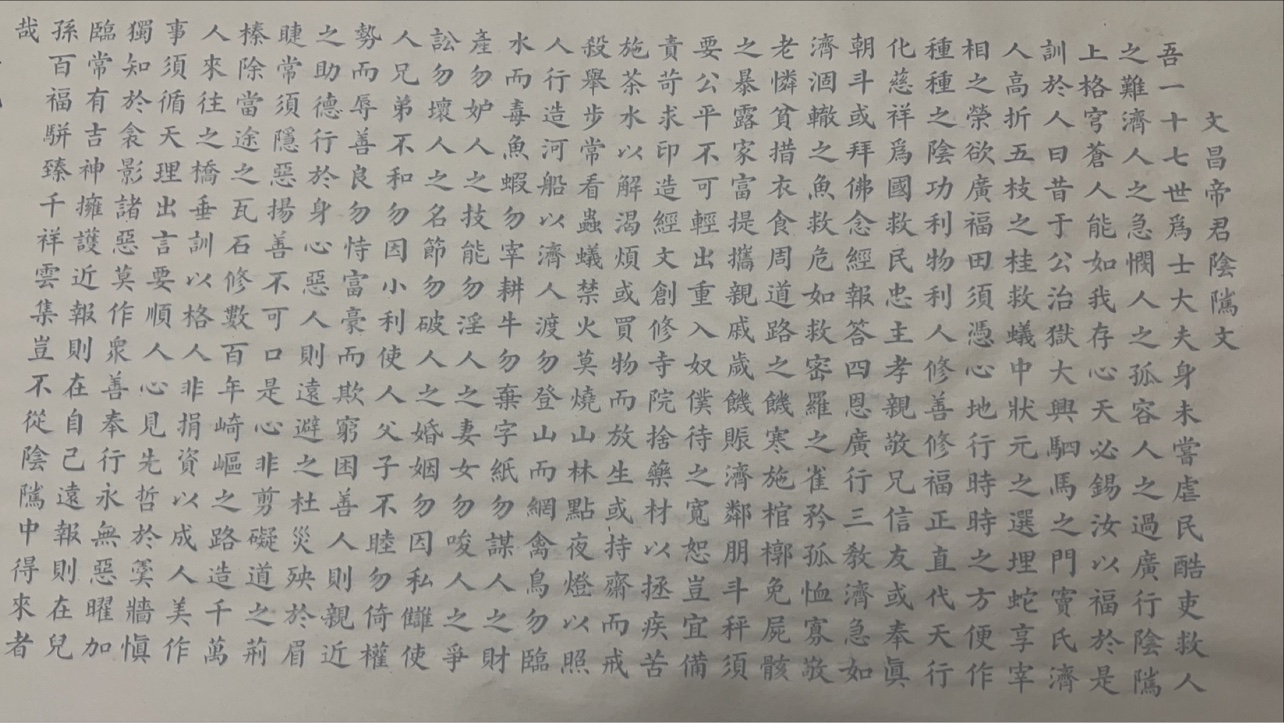 文昌帝君陰隲文
吾一十七世爲士大夫身未嘗虐民酷吏救人
之難濟人之急憫人之孤容人之過廣行陰隲
上格穹蒼人能如我存心天必錫汝以福於是
訓於人曰昔于公治獄大興駟馬之門竇氏濟
人高折五枝之桂救蟻中狀元之選埋蛇享宰
相之榮欲廣福田須憑心地行時時之方便作
種種之陰功利物利人修善修福正直代天行
化慈祥爲國救民忠主孝親敬兄信友或奉眞
朝斗或拜佛念經報答四恩廣行三教濟急如
濟涸轍之魚救危如救密羅之雀矜孤恤寡敬
老憐貧措衣食周道路之饑寒施棺槨免屍骸
之暴露家富提攜親戚歲饑賑濟鄰朋斗秤須
要公平不可輕出重入奴僕待之寬恕豈宜備
責苛求印造經文創修寺院捨藥材以拯疾苦
施茶水以解渴煩或買物而放生或持齋而戒
殺舉步常看蟲蟻禁火莫燒山林點夜燈以照
人行造河船以濟人渡勿登山而網禽鳥勿臨
水而毒魚蝦勿宰耕牛勿棄字紙勿謀人之財
產勿妒人之技能勿淫人之妻女勿唆人之爭
訟勿壞人之名節勿破人之婚姻勿因私讎使
人兄弟不和勿因小利使人父子不睦勿倚權
勢而辱善良勿恃富豪而欺窮困善人則親近
之助德行於身心惡人則遠避之杜災殃於眉
睫常須隱惡揚善不可口是心非剪礙道之荊
榛除當途之瓦石修數百年崎嶇之路造千萬
人來往之橋垂訓以格人非捐資以成人美作
事須循天理出言要順人心見先哲於羹牆慎
獨知於衾影諸惡莫作衆善奉行永無惡曜加
臨常有吉神擁護近報則在自己遠報則在兒
孫百福駢臻千祥雲集豈不從陰隲中得來者
哉